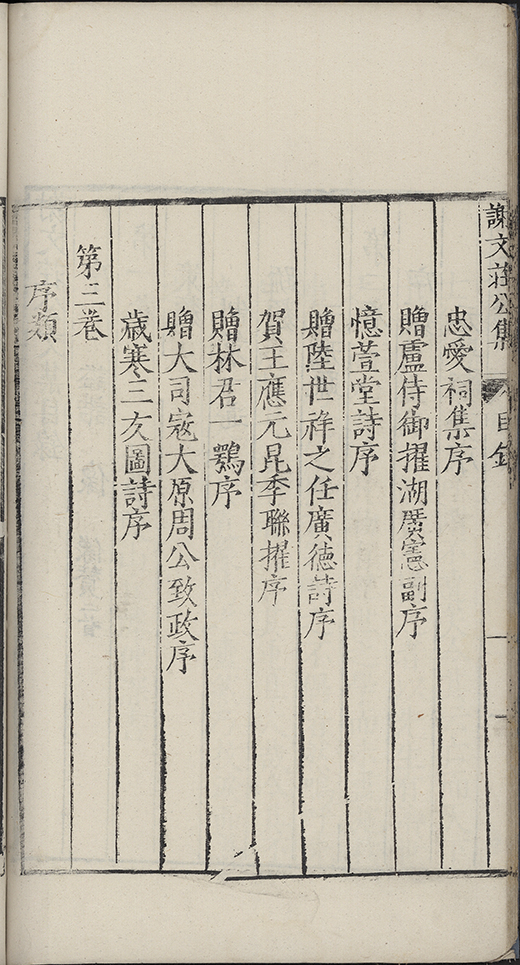 謝文莊公集 目錄
忠愛祠集序
贈盧侍御擢湖廣憲副序
憶萱堂詩序
贈陸世祥之任廣德詩序
賀王應元昆季聯擢序
贈林君一鶚序
贈大司寇大原周公致政序
歲寒三友圖詩序
第三卷
序類